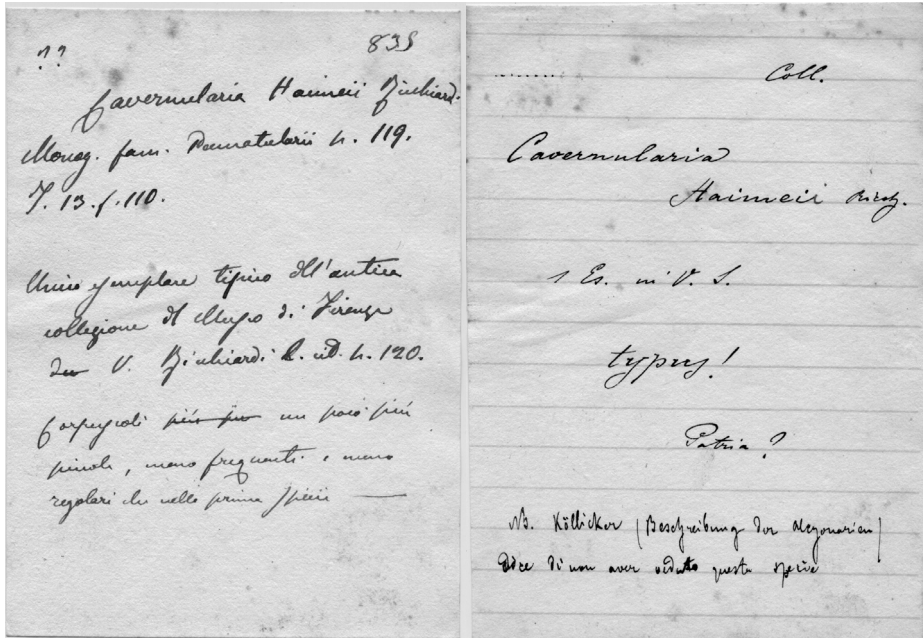 ??
835
Cavernularia Haimeii Richiard.
Monog. fam. Pennatularii p. 119.
T. 13. f. 110.
Unico esemplare tipico dell'antica
collezione del Museo di Firenze
V. Richiardi l. cit. p. 120.
Corpuscoli più un poco più
piccoli, meno frequenti e meno
regolari che nella prima specie —
Coll.
Cavernularia
Haimeii Rich.
1 Es. in V. S.
typus!
Patria?
NB. Köllicker (Beschreibung der Alcyonarien)
dice di non aver veduto questa specie